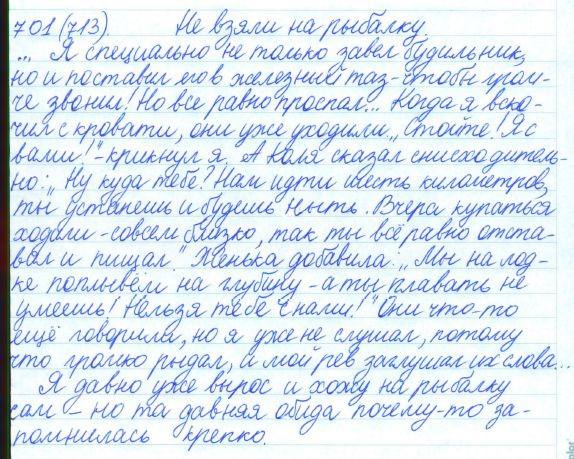 701(713). Не взяли на рыбалку
... Я специально не только завёл будильник,
но и поставил его в железный таз - чтобы гром-
че звонил! Но все равно проспал... Когда я вско-
чил с кровати, они уже уходили. „Стойте! Я с
вами!" - крикнул я. А Коля сказал снисходитель-
но: „Ну куда тебе? Нам идти шесть километров,
ты устанешь и будешь ныть. Вчера купаться
ходили - совсем близко, так ты всё равно отста-
вал и пищал." Женька добавила: „Мы на лод-
ке поплывём на глубину - а ты плавать не
умеешь! Нельзя тебе с нами!" Они что-то
ещё говорили, но я уже не слушал, потому
что громко рыдал, и мой рев заглушал их слова...
Я давно уже вырос и хожу на рыбалку
сам - но та давняя обида почему-то за-
помнилась крепко.